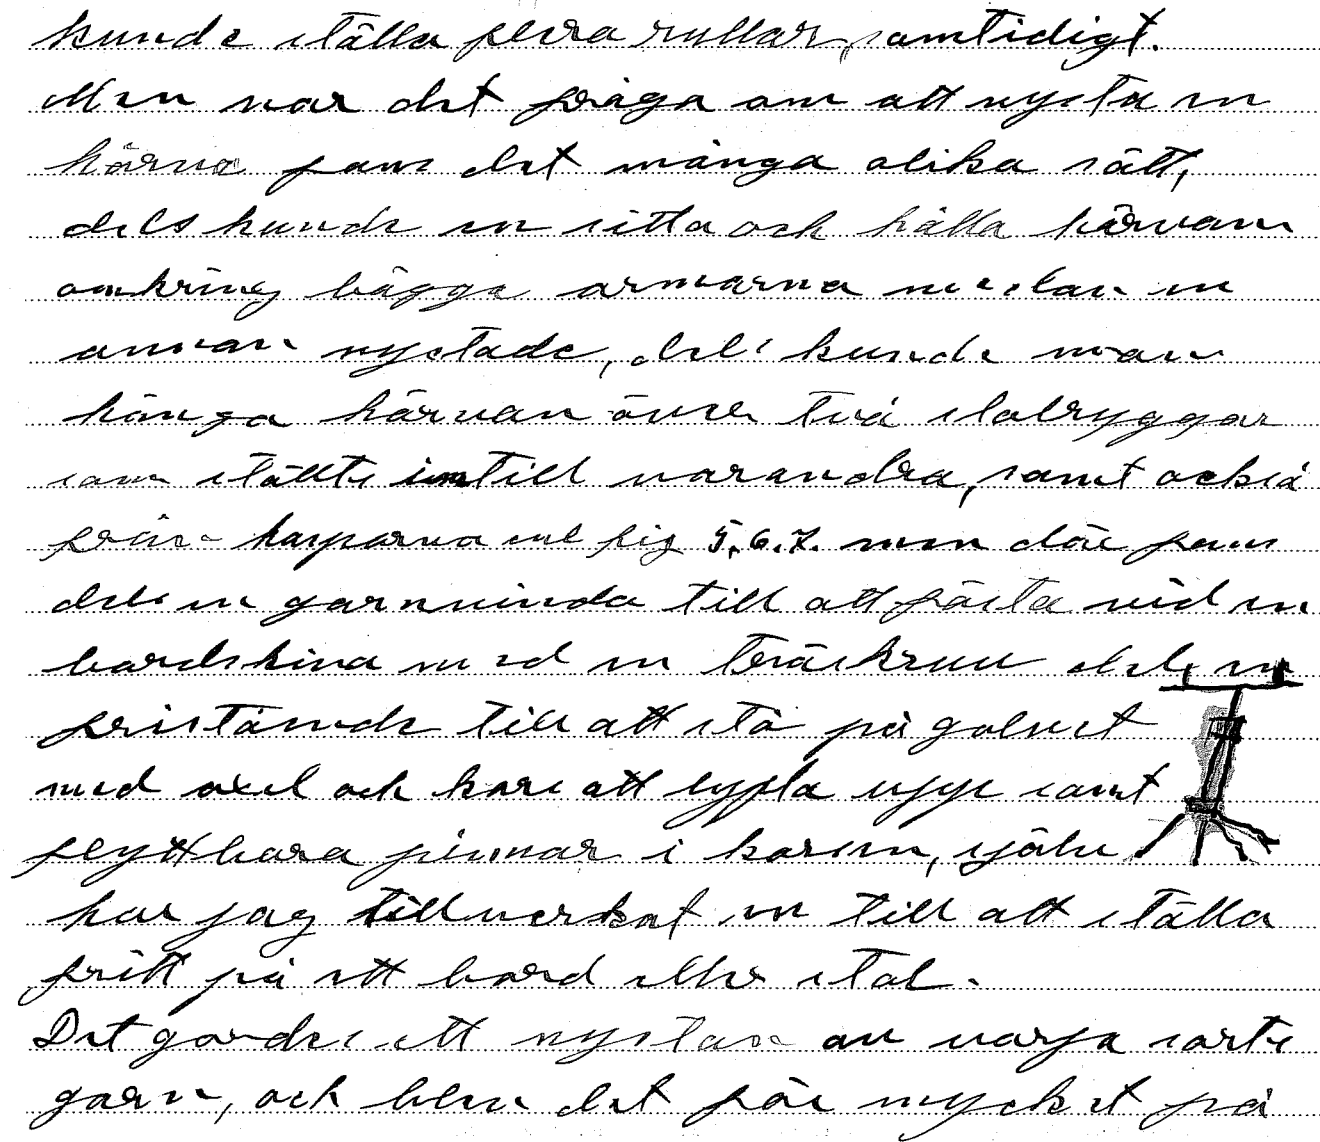 kunde ställa flera rullar samtidigt.
Men var det fråga om att nysta en
härva fans det många olika sätt,
dels kunde en sitta och hålla härvam
omkring bägge armarna medan en
annan nystade, dels kunde man
hänga härvan över två stolryggar
som ställts intill varandra, samt också
harporna enl fig 5.6.7. men där fans
dels en garnvinda till att fästa vid en
bordskiva med en träskruv dels en
fristående till att stå på golvet
med axel och kors att lyfta upp samt
flyttbara pinnar i korsen, själv
har jag tillverkat en till att ställa
fritt på ett bord eller stol.
Det gordes ett nystan av varja sorts
garn, och blev det för mycket på